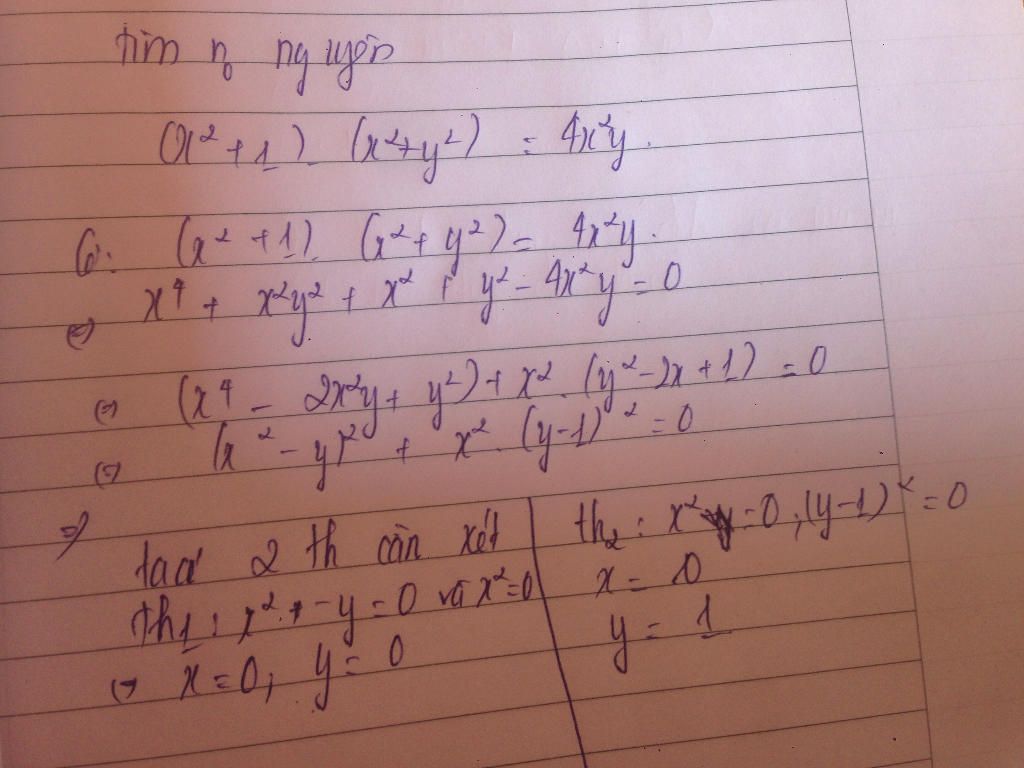 tìm n₀ nguyên
(x² + 1). (x² + y²) = 4x²y.
G: (x² + 1). (x² + y²) = 4x²y.
(=) x⁴ + x²y² + x² + y² - 4x²y = 0
(=) (x⁴ - 2x²y + y²) + x². (y² - 2x + 1) = 0
(=) (x² - y)² + x². (y - 1)² = 0
=> ta có 2 th cần xét
th1: x² - y = 0 và x² = 0
(=) x = 0, y = 0
th₂: x² - y = 0; (y - 1)² = 0
x = 0
y = 1